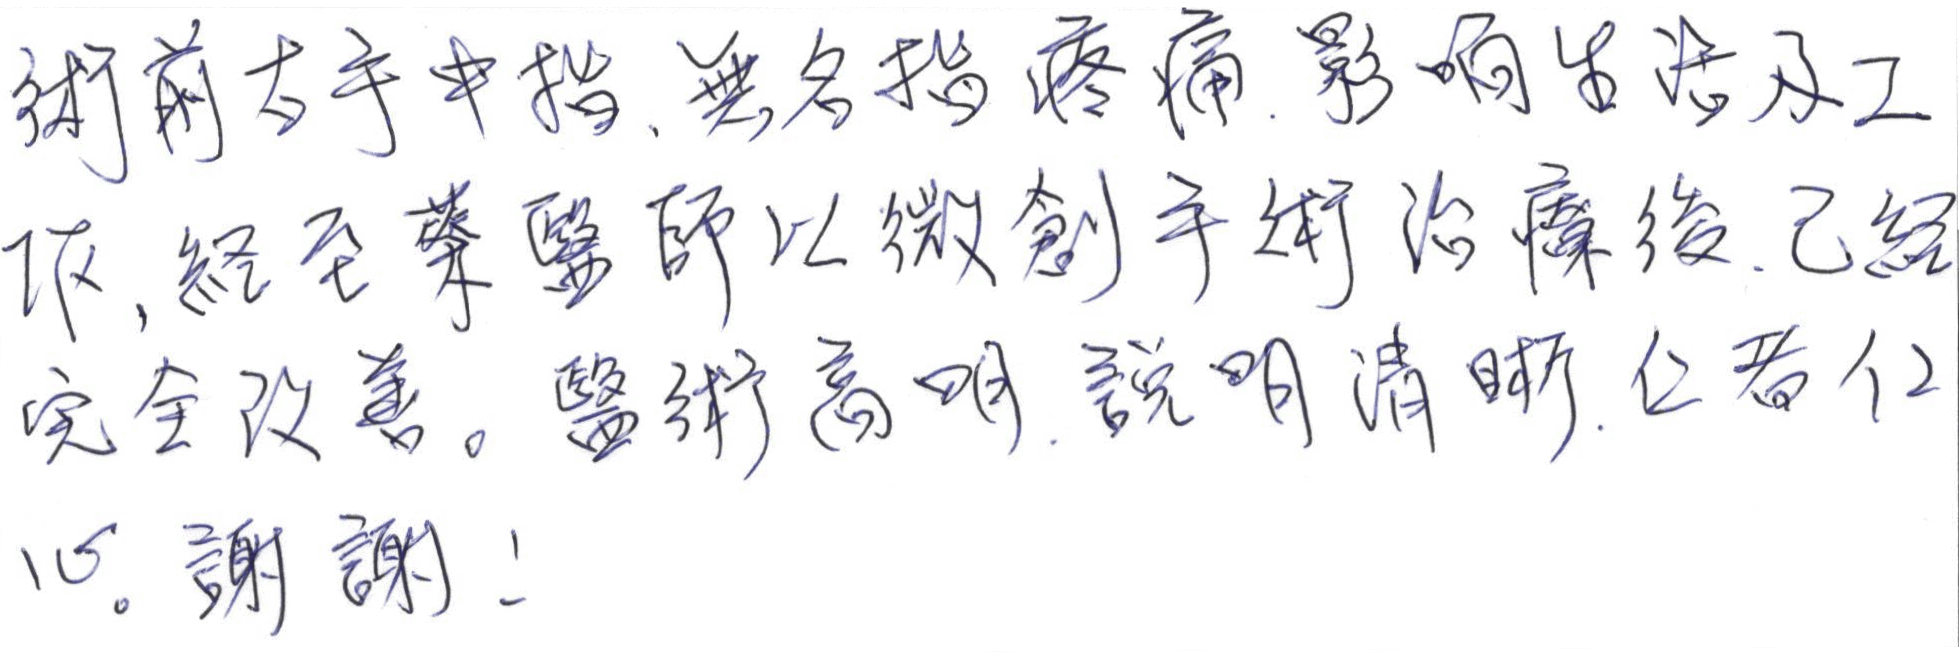 術前右手中指、無名指疼痛.影响生活及工
作,經至葉醫師以微創手術治療後.已經
完全改善。醫術高明.說明清晰.仁者仁
心。謝謝!